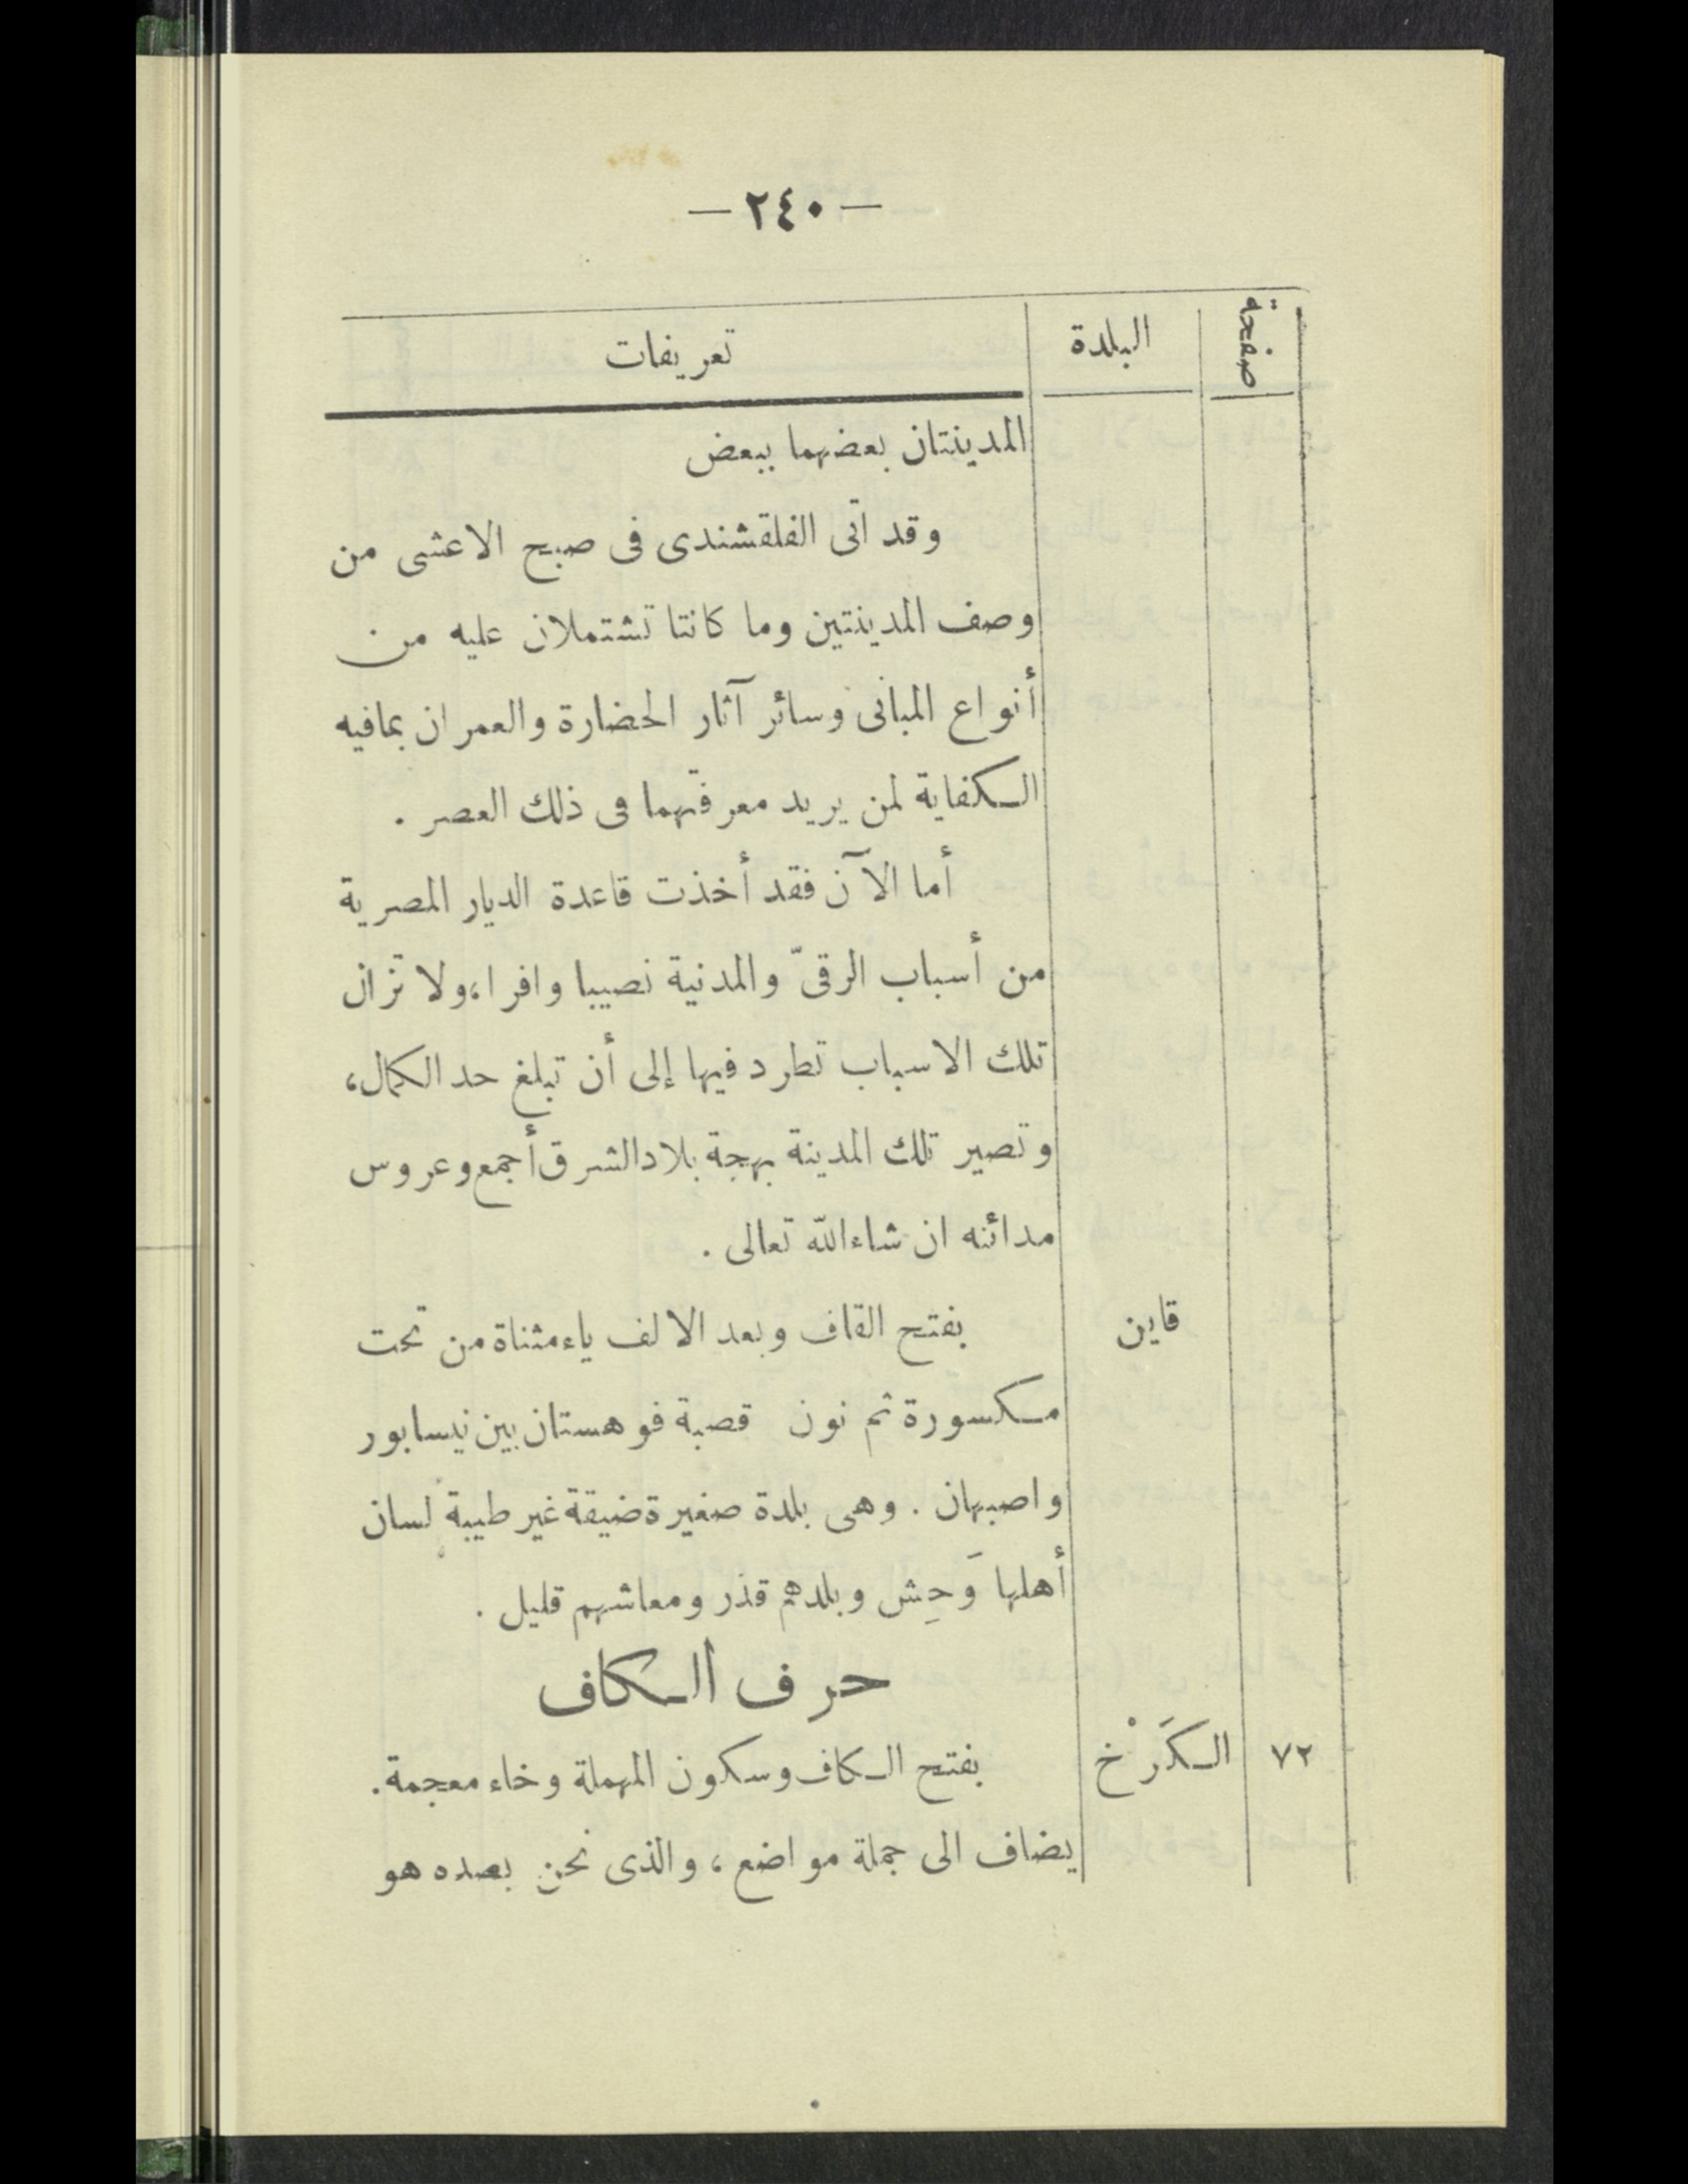 — ٢٤٠ —
صفحة البلدة تعريفات
المدينتان بعضهما ببعض
وقد اتى الفلقشندى فى صبح الاعشى من
وصف المدينتين وما كانتا تشتملان عليه من
أنواع المبانى وسائر آثار الحضارة والعمران بمافيه
الكفاية لمن يريد معرفتهما فى ذلك العصر .
أما الآن فقد أخذت قاعدة الديار المصرية
من أسباب الرقىّ والمدنية نصيبا وافرا، ولا تزال
تلك الاسباب تطرد فيها إلى أن تبلغ حد الكمال،
وتصير تلك المدينة بهجة بلاد الشرق أجمع وعروس
مدائنه ان شاء الله تعالى .
قاين بفتح القاف وبعد الالف ياء مثناة من تحت
مكسورة ثم نون قصبة فوهستان بين نيسابور
واصبهان . وهى بلدة صغيرة ضيقة غير طيبة لسان
أهلها وَحِش وبلدهم قذر ومعاشهم قليل .
حرف الكاف
٧٢ الكَرْخ بفتح الكاف وسكون المهملة وخاء معجمة.
يضاف الى جملة مواضع ، والذى نحن بصده هو